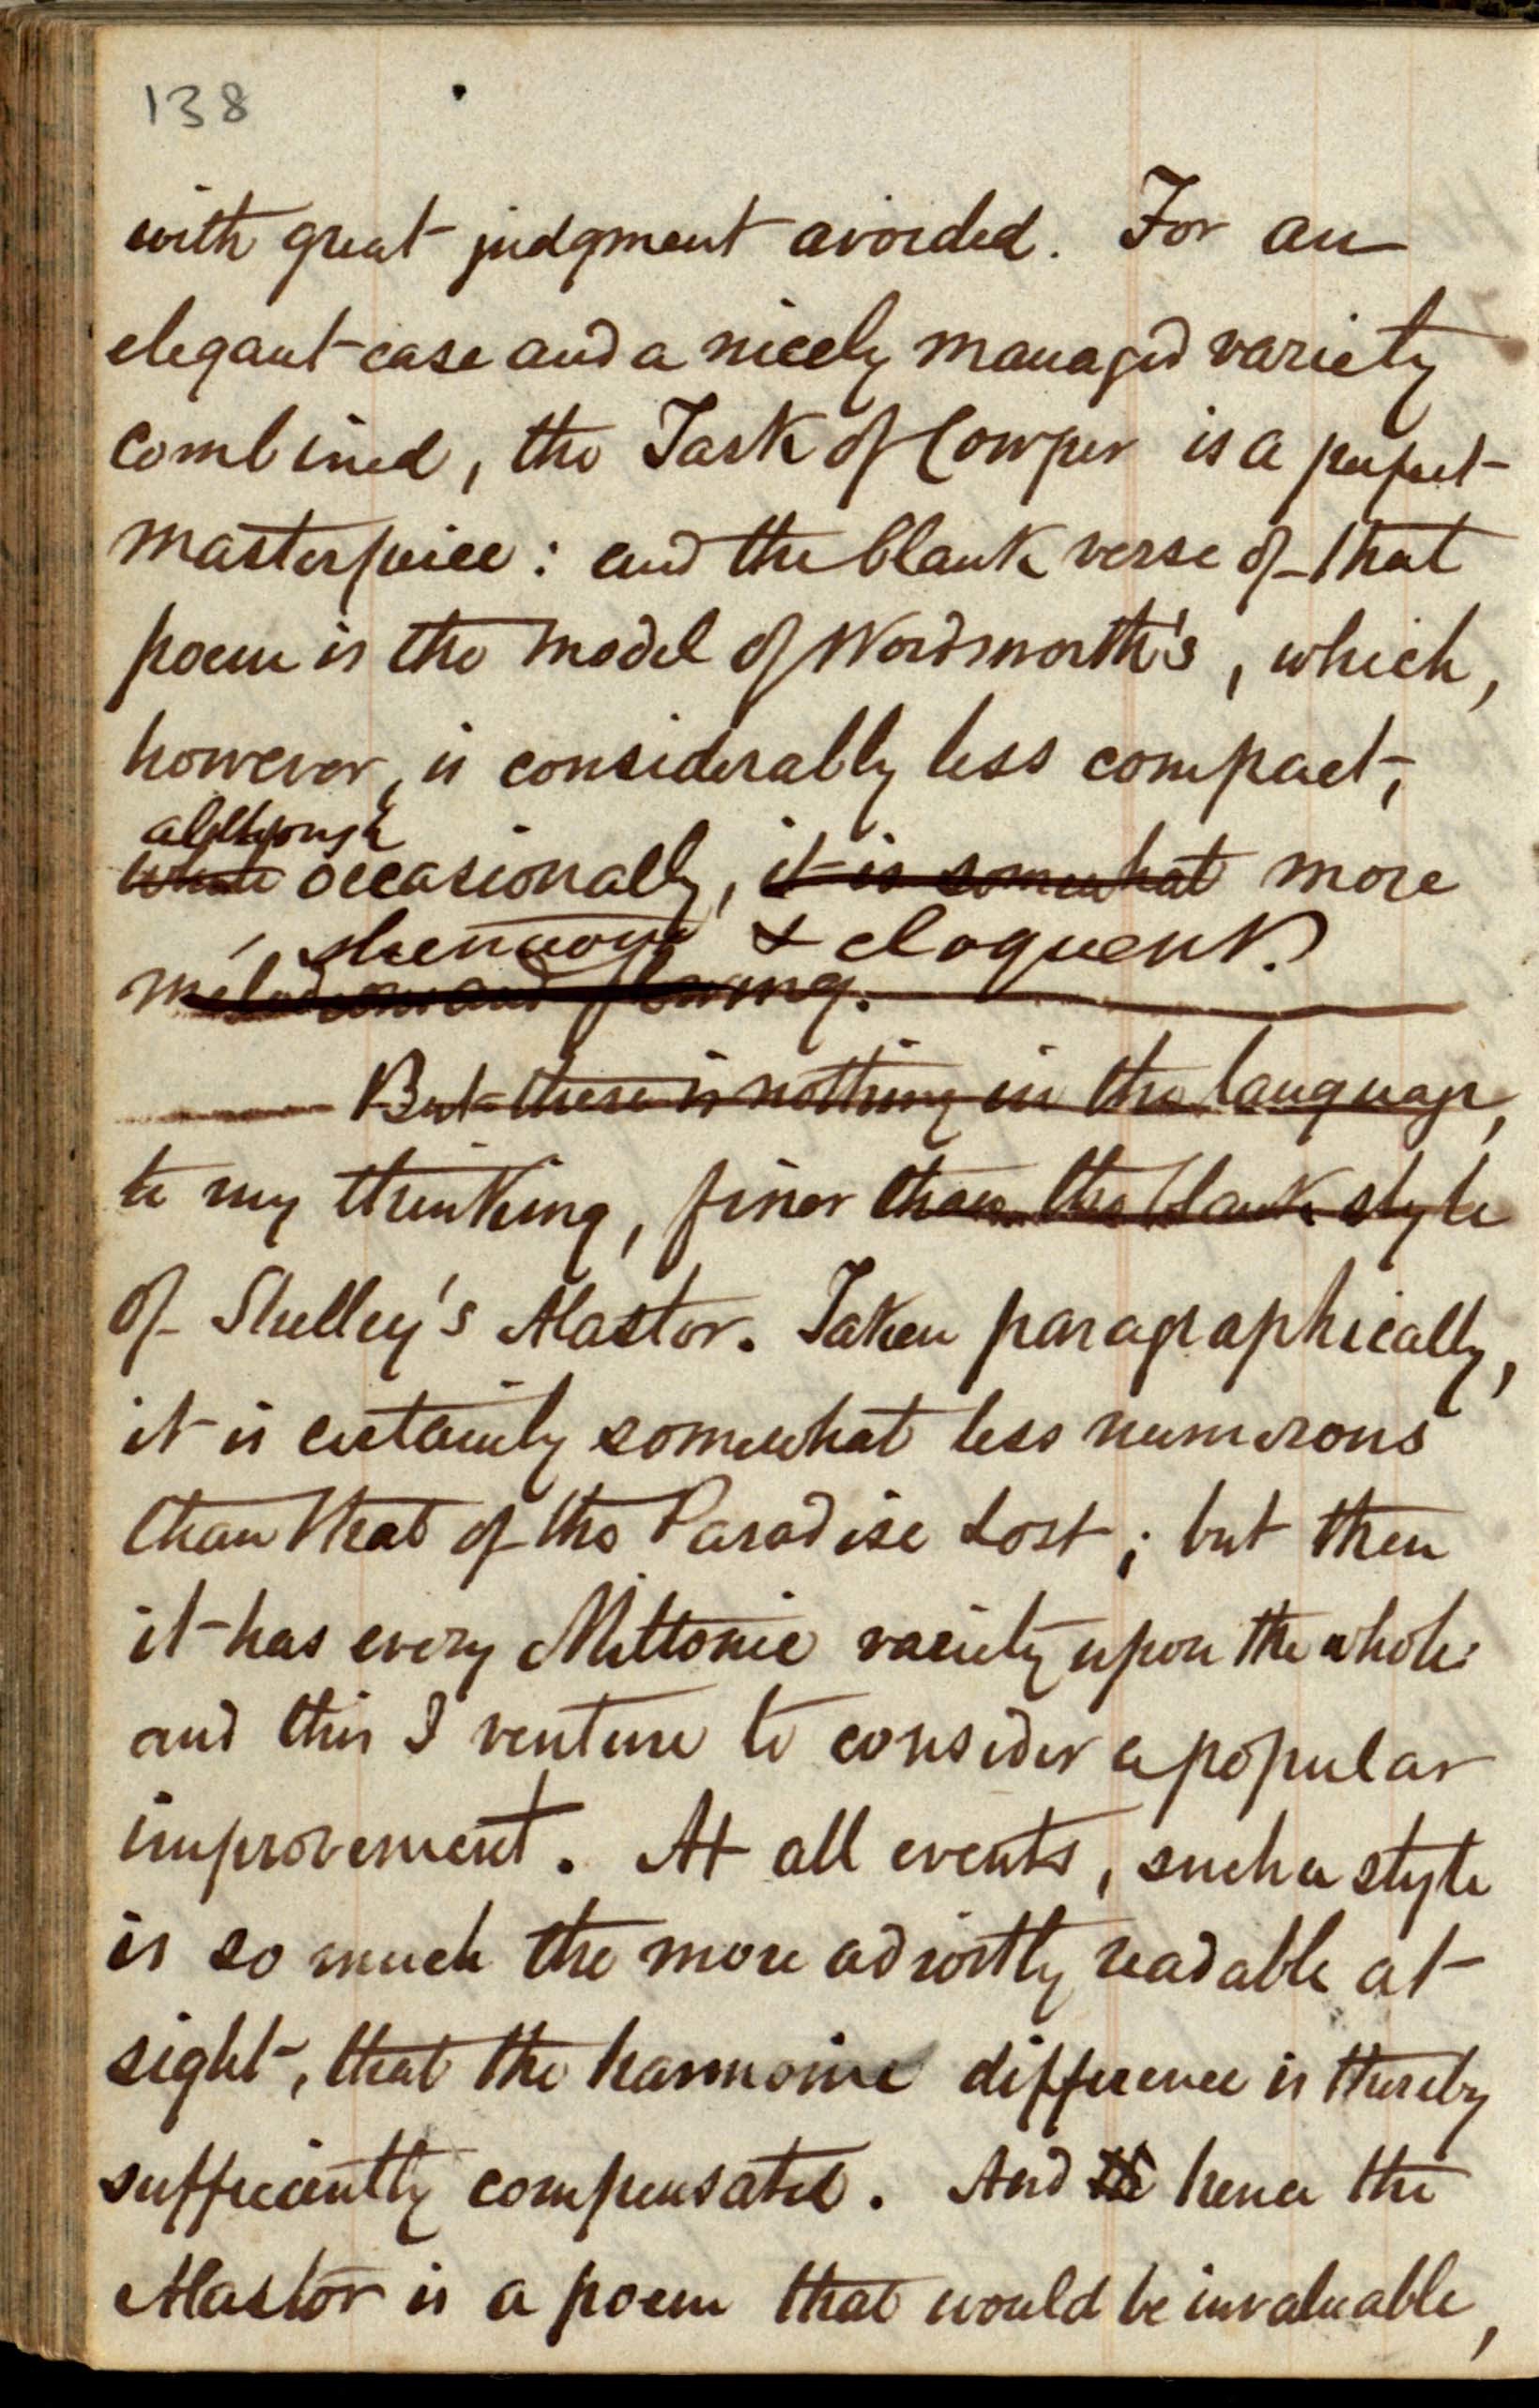 138
with great judgment avoided. For an
elegant ease and a nicely managed variety
combined, the Task of Cowper is a perfect
masterpiece: and the blank verse of that
poem is the model of Wordsworth's, which,
however, is considerably less compact,
although
while occasionally, it is somewhat more
strenuous & eloquent.
melodious and flowing.
But there is nothing in the language,
to my thinking, finer than the blank style
of Shelley's Alastor. Taken paragraphically,
it is certainly somewhat less numerous
than that of the Paradise Lost; but then
it has every Miltonic variety upon the whole:
and this I venture to consider a popular
improvement. At all events, such a style
is so much the more adroitly readable at
sight, that the harmonic difference is thereby
sufficiently compensated. And hence the
Alastor is a poem that would be invaluable,